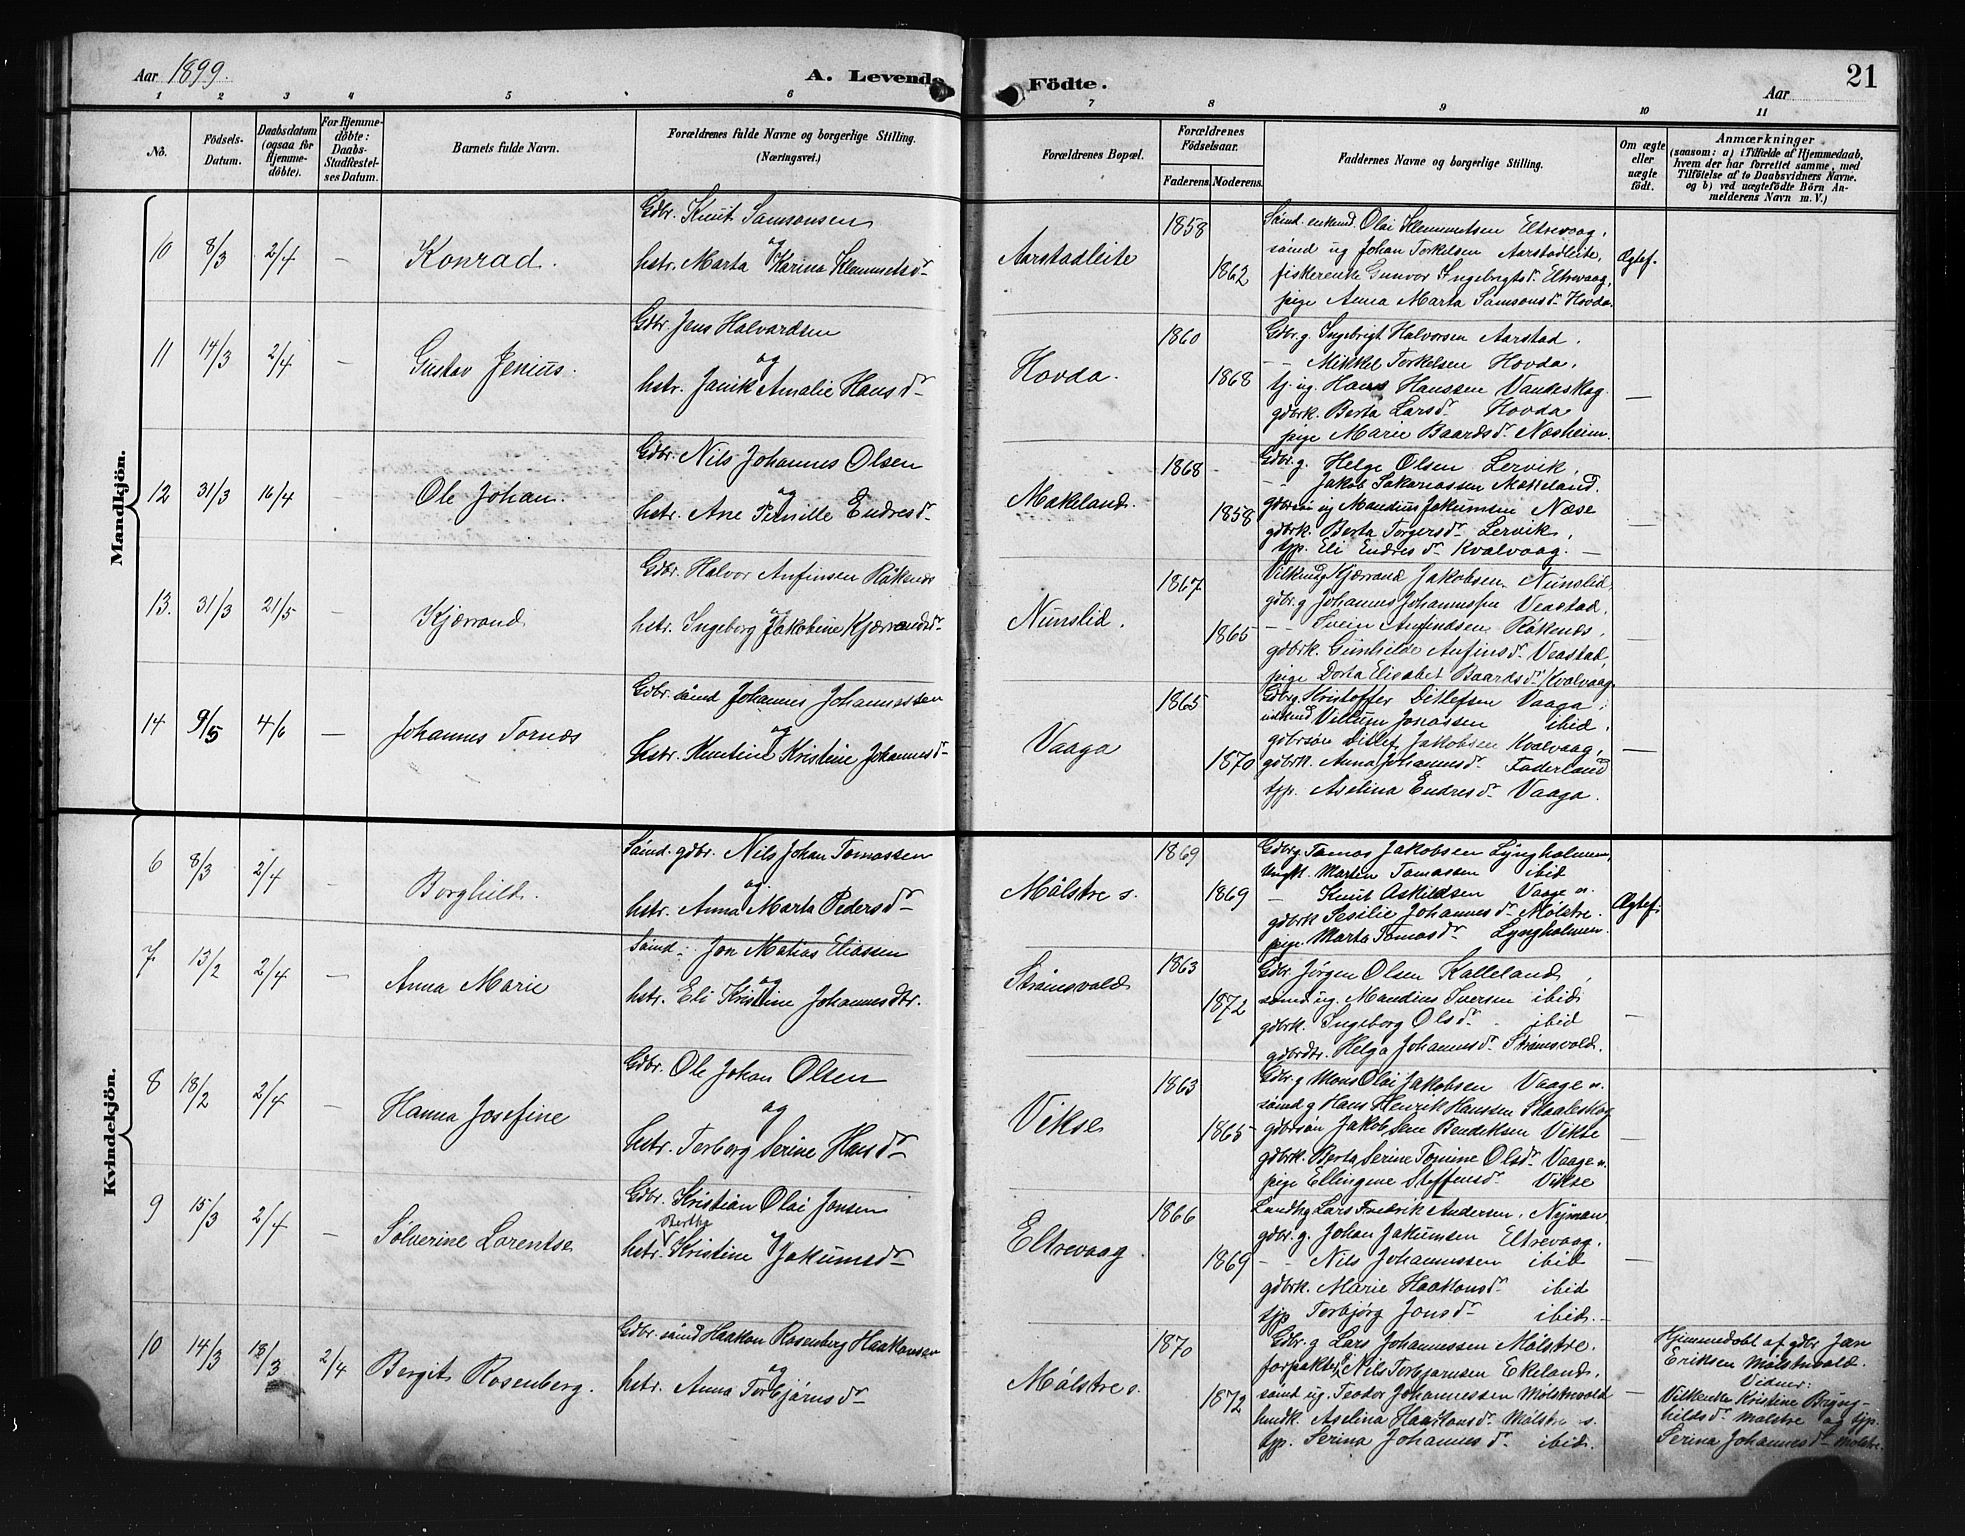 Aar 1899.
A. Levende
Födte.
21
Aar
1 2 3 4 5 6 7 8 9 10 11
No.
Födsels-
Datum.
Daabsdatum
(ogsaa for
Hjemme-
döbte).
For Hjemme-
döbte:
Daabs-
Stadfæstel-
ses Datum.
Barnets fulde Navn.
Forældrenes fulde Navne og borgerlige Stilling.
(Næringsvei.)
Forældrenes Bopæl.
Forældrenes
Födselsaar.
Faderens. Moderens.
Faddernes Navne og borgerlige Stilling.
Om ægte
eller
uægte
födt.
Anmærkninger
(saasom: a) i Tilfælde af Hjemmedaab,
hvem der har forrettet samme, med
Tilföielse af to Daabsvidners Navne.
og b) ved uægtefödte Börn An-
melderens Navn m. V.)
Mandkjön.
10 8/3 2/4 — Konrad.
Gdbr. Knut Samsonsen
og
hstr. Marta Karina Klemmetsdr
Aarstadleite
1858
1862
Sámd. enkemd. Olai Klemmetsen Eltrevaag,
sámd ug Johan Torkelsen Aarstadleite,
fiskerenke Gunvor Ingebrigtsdr Eltrevaag,
pige Anna Marta Samsonsdr Hovda.
Ægtef.
11 14/3 2/4 — Gustav Jenius.
Gdbr. Jens Halvardsen
og
hstr. Janik Amalie Hansdr
Hovda.
1860
1868
Gdbr. g. Ingebrigt Halvorsen Aarstad.
— Mikkel Torkelsen Hovda,
tj. ug. Hans Hanssen Vandeskog
gdbrk. Berta Larsdr Hovda
pige Marie Baardsdr Næsheim.
—
12 31/3 16/4 Ole Johan.
Gdbr. Nils Johannes Olsen
og
hstr. Ane Pernille Endresdr
Mækeland.
1868
1858
Gdbr. g. Helge Olsen Lervik,
— Jakob Sakariassen Mækeland.
gdbrsön ug Mandius Jakumsen Næse
gdbrk. Berta Torgersdr Lervik,
tjp. Eli Endresdr Kvalvaag. —
—
13. 31/3 21/5 — Kjærrand
Gdbr. Halvor Anfinsen Rökenes
og
hstr. Ingeborg Jakobine Kjærrandsdr
Nunslid.
1867
1865
Vilkmd Kjærrand Jakobsen Nunslid,
gdbr. g Johannes Johannessen Veastad,
— Svein Anfindsen Rökenes,
gdbrk. Gunhilde Anfinsdr Veastad,
pige Dorta Elisabet Baardsdr Kvalvaag.
—
14 9/5 4/6 — Johannes Tornæs
Gdbr. sámd Johannes Johannessen
og
hstr. Knutine Kristine Johannesdr
Vaaga
1865
1870
Gdbrg Kristoffer Ditlefsen Vaaga,
enkemd Villum Jonassen ibid,
gdbrsön Ditlef Jakobsen Kvalvaag,
gdbrk. Anna Johannesdr Faderland
tjp. Aselina Endresdr Vaaga.
—
Kvindekjön.
6 8/3 2/4 Borghild.
Sámd. gdbr. Nils Johan Tomassen
og
hstr. Anna Marta Pedersdr
Mölstre s.
1869
1869
Gdbrg Tomas Jakobsen Lyngholmen,
Martin Tomassen ibid
— Knut Askildsen Vaage n.
gdbrk Sesilie Johannesdr Mölstre.
pige Marta Tomasdr Lyngholmen.
Ægtef.
7. 13/2 2/4 — Anna Marie
Sámd. Jon Matias Eliassen
og
hstr. Eli Kristine Johannesdtr.
Strömsvold
1863
1872
Gdbr. Jörgen Olsen Kalleland,
sámd ug. Mandius Iversen ibid,
gdbrk. Ingeborg Olsdr ibid
gdbrdtr. Helga Johannesdr Strömsvold.
—
8 18/2 2/4 — Hanna Josefine
Gdbr. Ole Johan Olsen
og
hstr. Torborg Serine Hansdr
Vikse
1863
1865
Gdbr. g Mons Olai Jakobsen Vaage n.
sámd g Hans Henrik Hanssen Skaaleskog
gdbrsön Jakob Sem Bendiksen Vikse
gdbrk. Berta Serine Tomine Olsdr Vaage n.
pige Ellingine Steffensdr Vikse
—
9 15/3 2/4 — Sölverine Lorentse
Gdbr. Kristian Olai Jonsen
Berthe og
hstr. Kristine Jakumsdr
Eltrevaag
1866
1869
Landhg Lars Fredrik Andersen, Nyman
gdbr. g. Johan Jakumsen Eltrevaag.
— Nils Johannessen ibid
gdbrk. Marie Haakonsdr ibid
tjp Torbjörg Jonsdr ibid. —
—
10 14/3 18/3 2/4 Bergit Rosenberg.
Gdbr. sámd Haakon Rosenberg Haakonsen
og
hstr. Anna Torbjörnsdr
Mölstre s.
1870
1872
Gdbr. g Lars Johannessen Mölstre.
forpakter g Nils Torbjörnsen Ekeland,
sámd ug. Teodor Johannessen Mölstrevold
hmdk. Aselina Haakonsdr Mölstre s.
tjp. Serina Johannesdr ibid.
—
Hjemmedöbt af gdbr Jan
Eriksen Mölstrevold.
Vidner:
Vilkenke Kristine Bryng-
hildsdr Mölstre og tjp.
Serina Johannesdr Mölstre